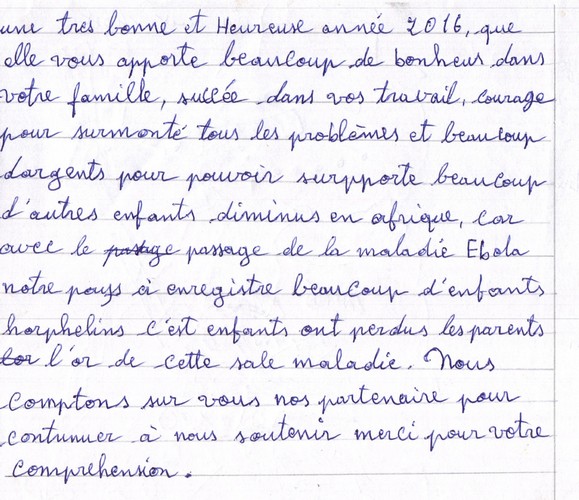 une tres bonne et Heureuse année 2016, que
elle vous apporte beaucoup de bonheus dans
votre famille, succée dans vos travail, courage
pour surmonté tous les problèmes et beaucoup
dargents pour pouvoir surpporte beaucoup
d'autres enfants diminus en afrique, car
avec le passage de la maladie Ebola
notre pays à enregistre beaucoup d'enfants
horphelins c'est enfants ont perdus les parents
l'or de cette sale maladie. Nous
Comptons sur vous nos partenaire pour
contunuer à nous soutenir merci pour votre
comprehension.